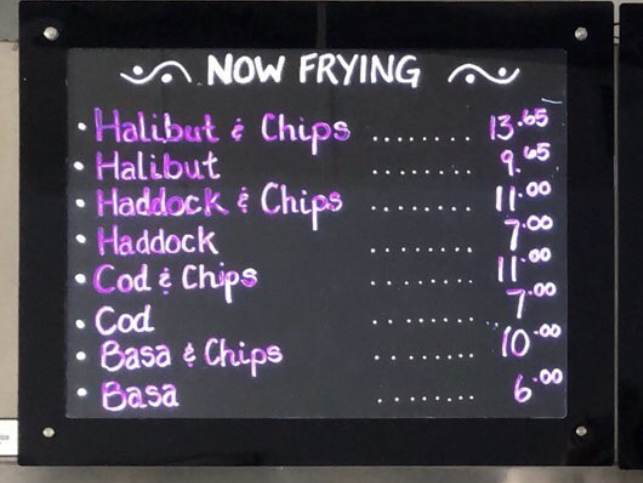 NOW FRYING
• Halibut & Chips ........ 13.65
• Halibut ........ 9.65
• Haddock & Chips ........ 11.00
• Haddock ........ 7.00
• Cod & Chips ........ 11.00
• Cod ........ 7.00
• Basa & Chips ........ 10.00
• Basa ........ 6.00